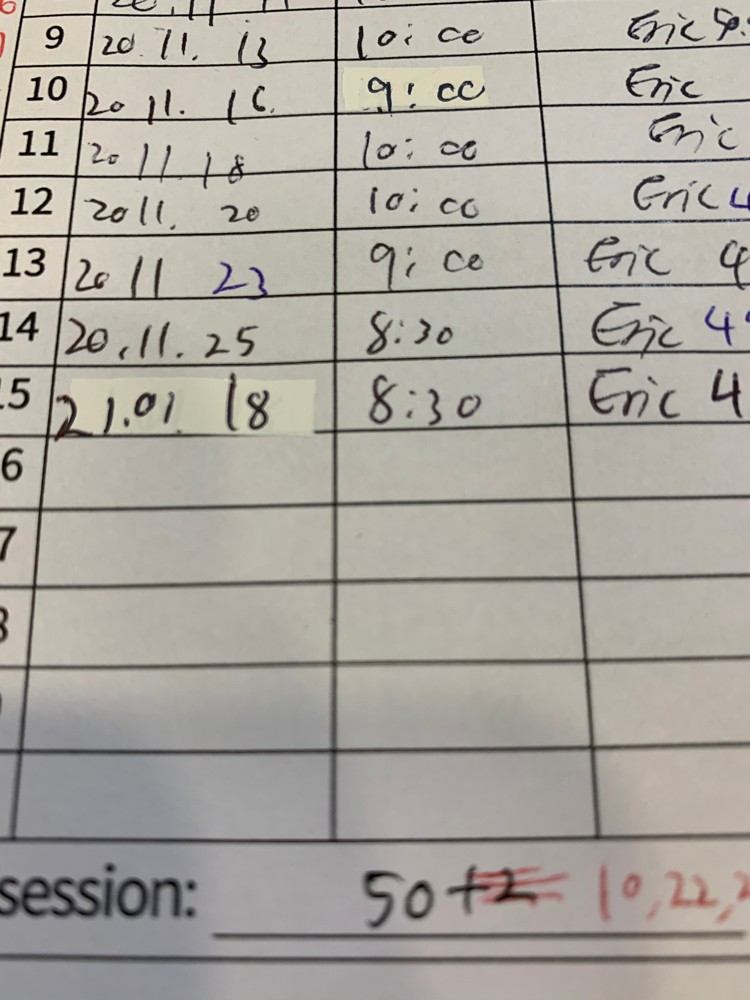 9 20.11. 13 10:00 Eric
10 20 11. 16. 9:00 Eric
11 20 11 18 10:00 Eric
12 20 11. 20 10:00 Eric 4
13 20 11 23 9:00 Eric 4
14 20.11.25 8:30 Eric 4
15 21.01 18 8:30 Eric 4
6
7
8
session: 50+2 10,22,2